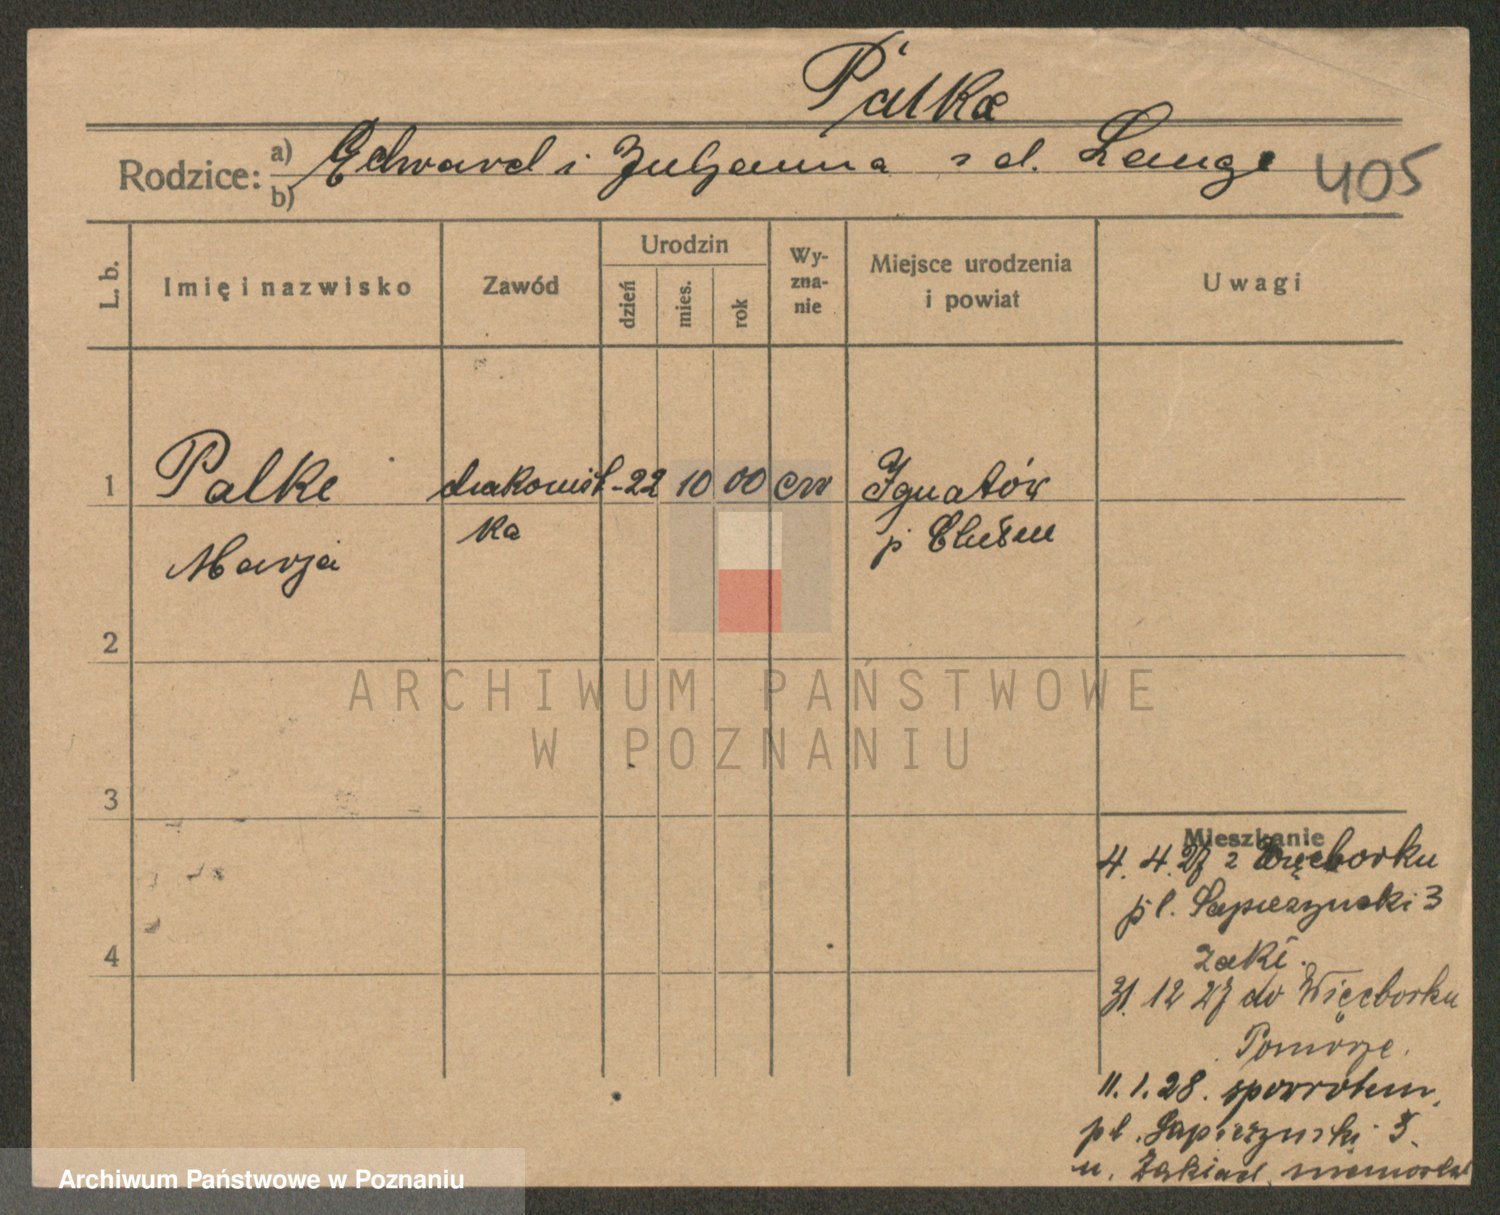 Palke
Rodzice: a) Edward i Juljanna z d. Lange 405
b)
L. b. Imię i nazwisko Zawód Urodzin dzień mies. rok Wyznanie Miejsce urodzenia i powiat Uwagi
1 Palke 22 10 00 ew Ignatów
ka
Marja
p
2
ARCHIWUM PAŃSTWOWE
W POZNANIU
3
Mieszkanie
4. 4. 27 z Więcborku
pl. Sapieżyński 3
4
31. 12 27 do Więcborku
Pomorze.
11. 1. 28. spowrotem,
pl. Sapieżyński 3.
u.
Archiwum Państwowe w Poznaniu